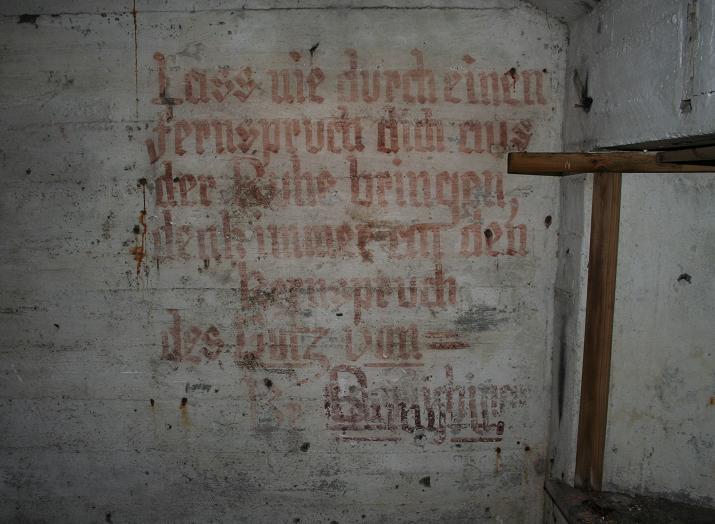 Lass nie durch einen
Fernspruch dich aus
der Ruhe bringen,
denk immer an den
Kernspruch
des Götz von=
Berlichingen